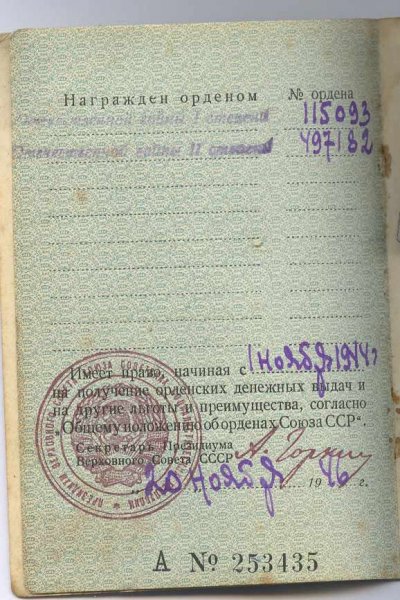 Награжден орденом № ордена
Отечественной войны I степени 115093
Отечественной войны II степени 497182
Имеет право, начиная с 1 ноября 1944 г
на получение орденских денежных выдач и
на другие льготы и преимущества, согласно
"Общему положению об орденах Союза ССР".
Секретарь Президиума
Верховного Совета СССР А. Горкин
"20 ноября 1946 г.
А № 253435